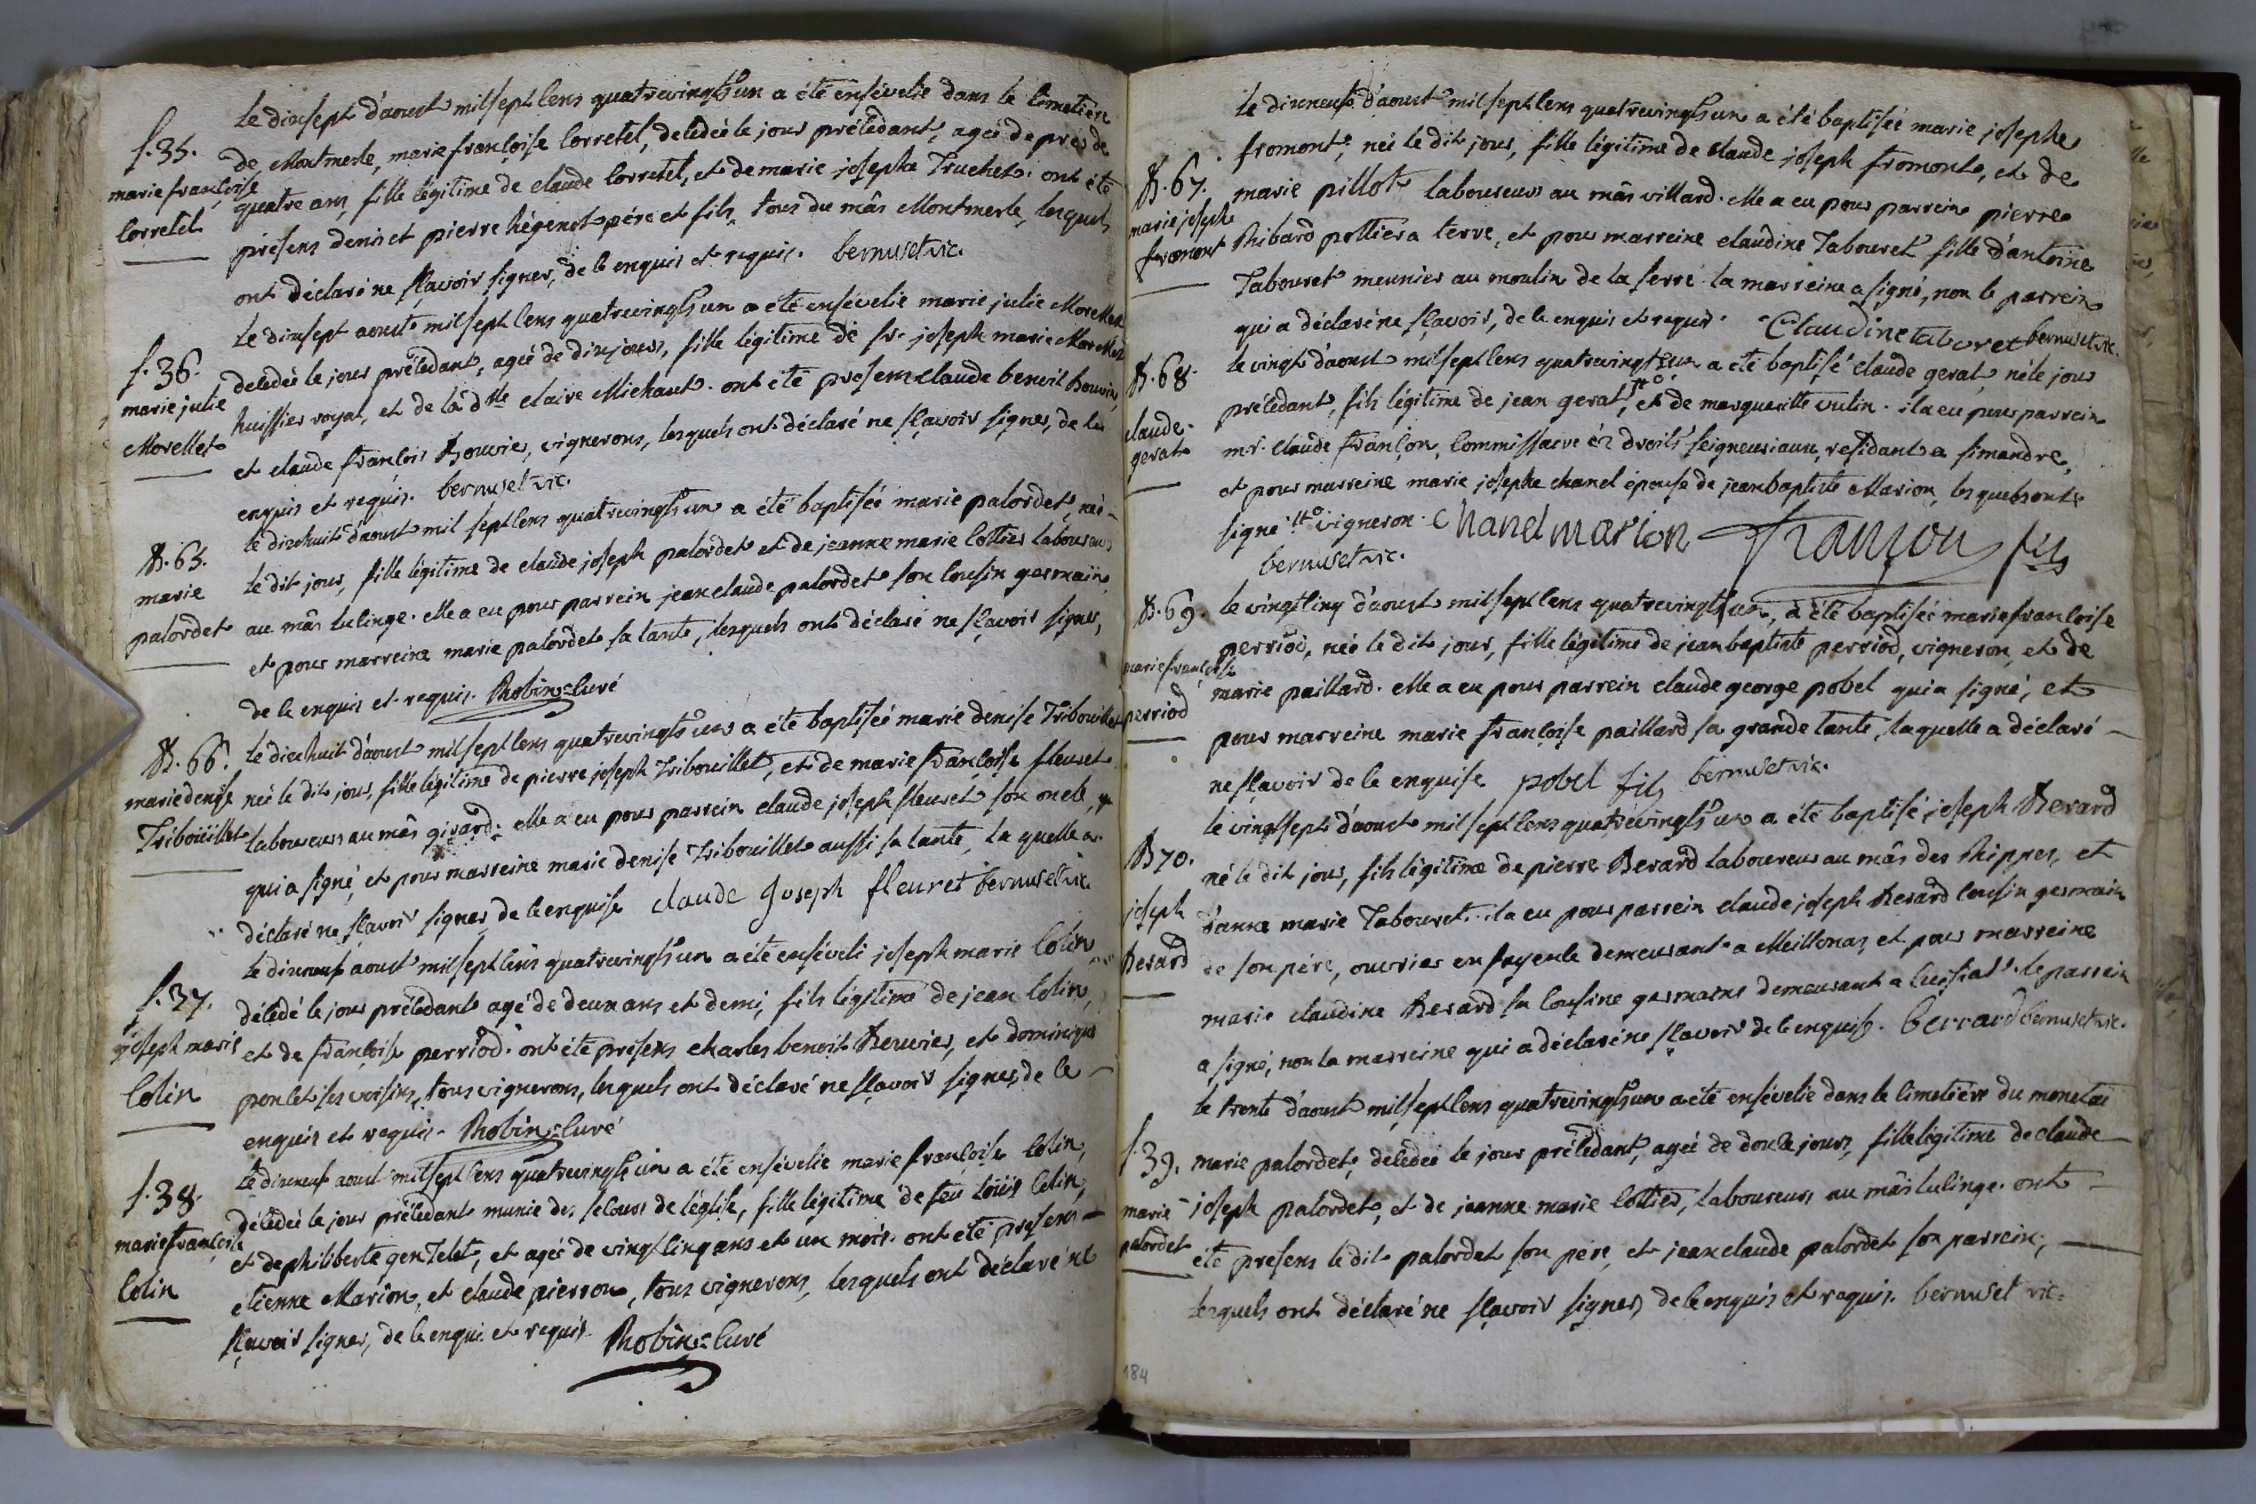 s. 35.
marie françoise
corretel
Le dixsept d'aoust mil sept cens quatrevingts un a été ensévelie dans le cimetiére
de Montmerle, marie françoise Corretel, décédée le jour précédant, agée de près de
quatre ans, fille légitime de claude Corretel, et de marie josephe Truchet. ont été
présens denis et pierre hégenot père et fils, tous du mâs Montmerle, lesquels
ont déclaré ne sçavoir signer, de ce enquis et requis. bernuset vic.
s. 36.
marie julie
Morellet
Le dixsept aoust mil sept cens quatrevingts un a été ensévelie marie julie Morellet
décédée le jour précédant, agée de dix jours, fille légitime de sr. joseph marie Morellet
huissier royal, et de la dlle claire Michaut. ont été présens claude benoit bouvier,
et claude françois Bouvier, vignerons, lesquels ont déclaré ne sçavoir signer, de ce
enquis et requis. bernuset vic.
B. 65.
marie
palordet
le dixhuit d'aoust mil sept cens quatrevingts un a été baptisée marie palordet, née
le dit jour, fille légitime de claude joseph palordet et de jeanne marie Cottier laboureurs
au mâs lulinge. elle a eu pour parrein jean claude palordet son cousin germain,
et pour marreine marie palordet sa tante, lesquels ont déclaré ne sçavoir signer,
de ce enquis et requis. Robin curé
B. 66.
marie denise
Tribouillet
Le dixhuit d'aoust mil sept cens quatrevingts un a été baptisée marie denise Tribouillet
née le dit jour, fille légitime de pierre joseph Tribouillet, et de marie françoise fleuret
laboureurs au mâs girard. elle a eu pour parrein claude joseph fleuret son oncle,
qui a signé, et pour marreine marie denise Tribouillet aussi sa tante, la quelle a
déclaré ne sçavoir signer de ce enquise claude Joseph fleuret bernuset vic.
s. 37.
joseph marie
Colin
Le dixneuf aoust mil sept cens quatrevingts un a été enséveli joseph marie Colin
décédé le jour précédant agé de deux ans et demi, fils légitime de jean Colin,
et de françoise perriod. ont été présens charles benoit Berurier, et dominique
poncet ses voisins, tous vignerons, lesquels ont déclaré ne sçavoir signer, de ce
enquis et requis. Robin curé
s. 38.
marie françoise
Colin
Le dixneuf aoust mil sept cens quatrevingts un a été ensévelie marie françoise Colin,
décédée le jour précédant munie des secours de l'église, fille légitime de feu Loüis Colin,
et de philiberte genTelet, et agée de vingt cinq ans et un mois. ont été présens
etienne Marion, et claude pierson, tous vignerons, lesquels ont déclaré ne
sçavoir signer, de ce enquis et requis. Robin curé
B. 67.
marie joseph
fromont
Le dixneuf d'aoust mil sept cens quatrevingts un a été baptisée marie josephe
fromont, née le dit jour, fille légitime de claude joseph fromont, et de
marie pillot laboureurs au mâs villard. elle a eu pour parrein pierre
Ribard pottier a terre, et pour marreine claudine Tabouret fille d'antoine
Tabouret meunier au moulin de la serre. la marreine a signé, non le parrein
qui a déclaré ne sçavoir, de ce enquis et requis. Claudine taboret bernuset vic.
B. 68.
claude
gerat
Le vingt d'aoust mil sept cens quatrevingts un a été baptisé claude gerat, né le jour
précédant, fils légitime de jean gerat, et de marguerite vulin. il a eu pour parrein
mr. claude françon, Commissaire ès droits seigneuriaux, residant a simandre,
et pour marreine marie josephe chanel épouse de jean baptiste Marion, lesquels ont
signé. vigneron. chanel marion françon
bernuset vic.
B. 69.
marie françoise
perriod
Le vingtcinq d'aoust mil sept cens quatrevingts un, a été baptisée marie françoise
perriod, née le dit jour, fille légitime de jean baptiste perriod, vigneron, et de
marie paillard. elle a eu pour parrein claude george pobel qui a signé, et
pour marreine marie françoise paillard sa grande tante, laquelle a déclaré
ne sçavoir de ce enquise pobel fils bernuset vic.
B 70.
joseph
Berard
Le vingtsept d'aoust mil sept cens quatrevingts un a été baptisé joseph Berard
né le dit jour, fils légitime de pierre Berard laboureur au mâs des Rippes, et
d'anne marie Tabouret. il a eu pour parrein claude joseph Berard cousin germain
de son père, ouvrier en fayence demeurant a Meillonas, et pour marreine
marie claudine Berard sa cousine germaine demeurant a Cuisiat. le parrein
a signé, non la marreine qui a déclaré ne sçavoir de ce enquise. berrard bernuset vic.
s. 39.
marie
palordet
Le trente d'aoust mil sept cens quatrevingts un a été ensévelie dans le cimetière du monetai
marie palordet, décédée le jour précédant, agée de douze jours, fille légitime de claude
joseph palordet, et de jeanne marie Cottier, laboureurs au mâs lulinge. ont
été présens le dit palordet son père, et jean claude palordet son parrein,
lesquels ont déclaré ne sçavoir signer, de ce enquis et requis. bernuset vic.
184